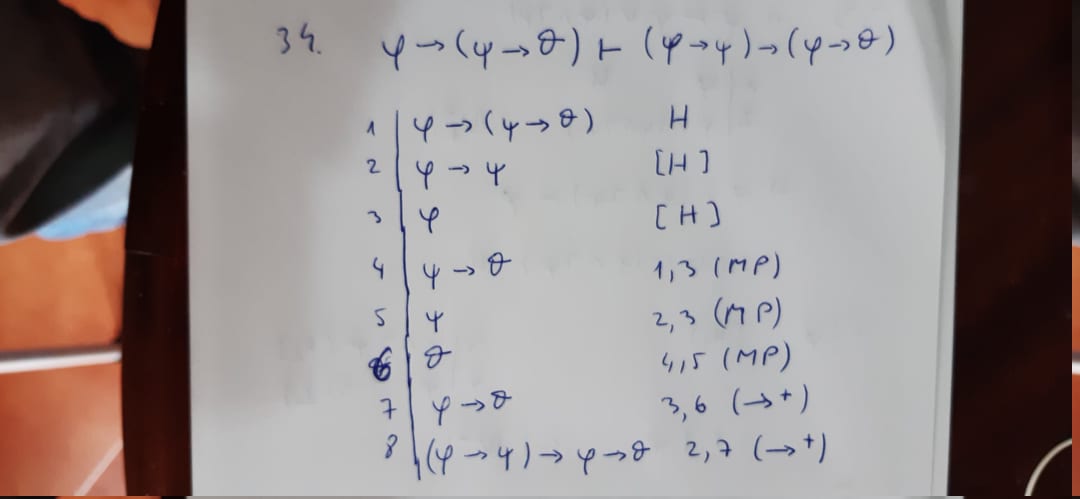 34. φ → (ψ → θ) ⊢ (φ → ψ) → (φ → θ)
1 φ → (ψ → θ) H
2 φ → ψ [H]
3 φ [H]
4 ψ → θ 1,3 (MP)
5 ψ 2,3 (MP)
6 θ 4,5 (MP)
7 φ → θ 3,6 (→⁺)
8 (φ → ψ) → φ → θ 2,7 (→⁺)